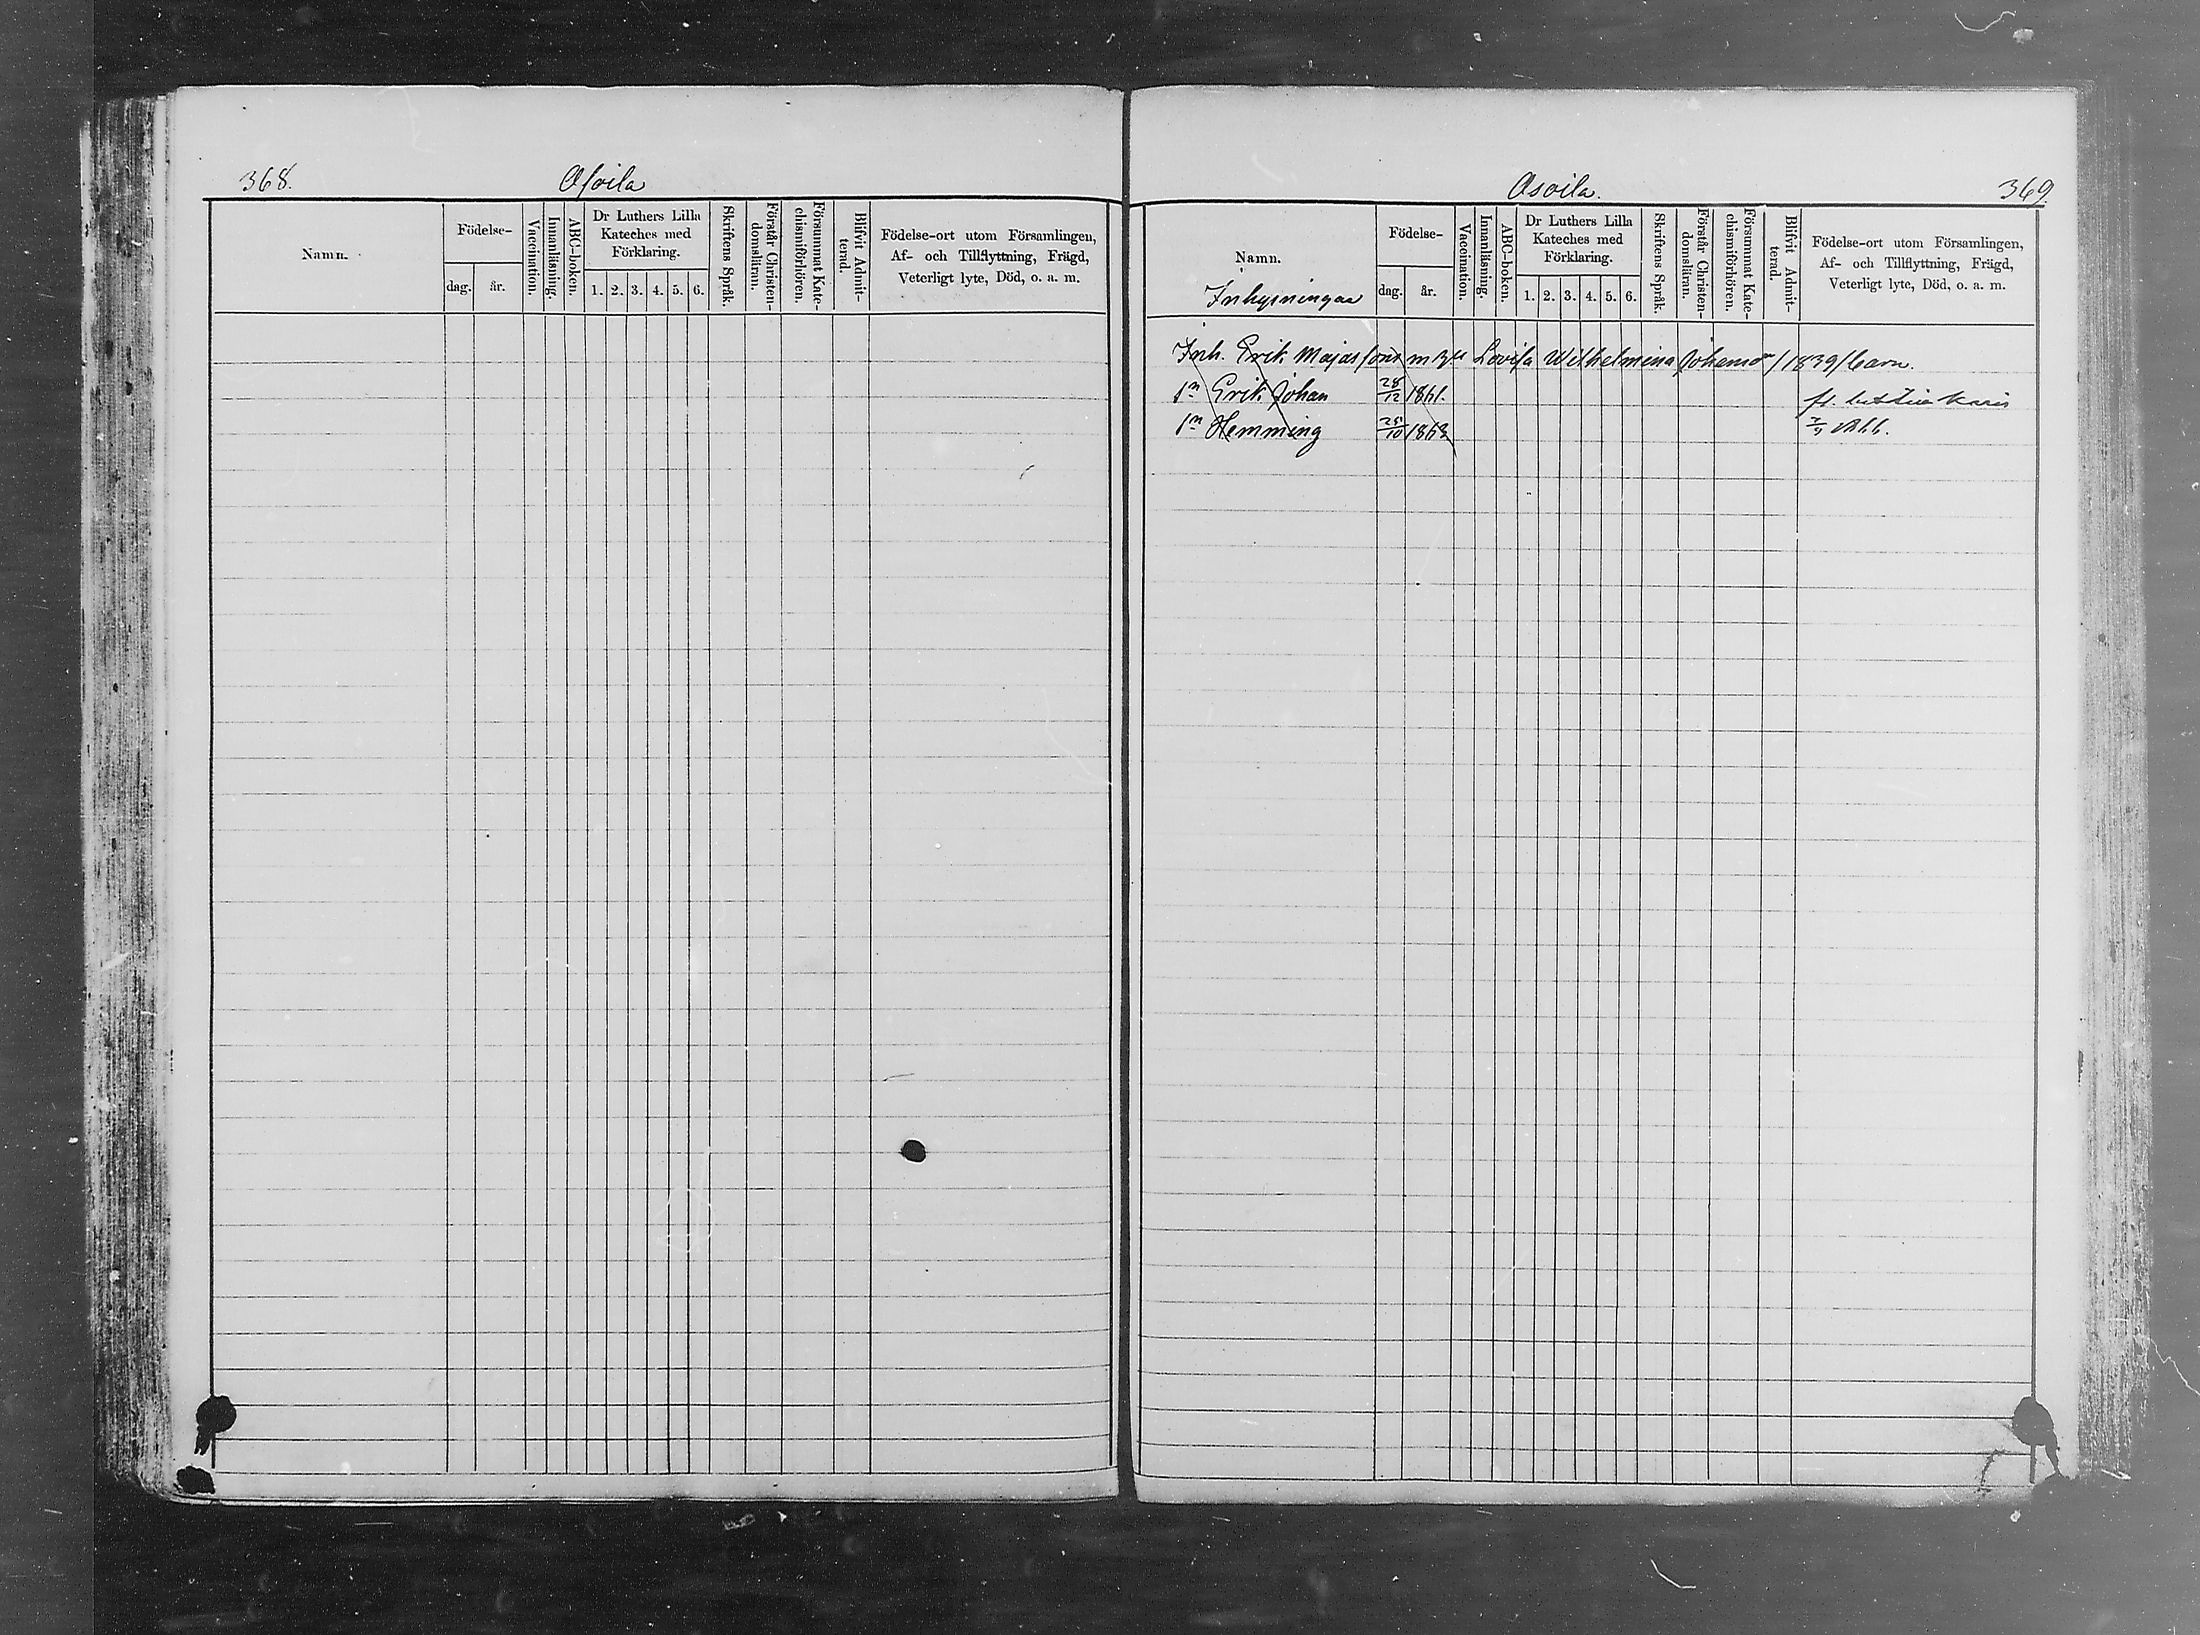 368.
Osoila
Namn.
Födelse-
dag.
år.
Vaccination.
Innanläsning.
ABC-boken.
Dr Luthers Lilla
Kateches med
Förklaring.
1. 2. 3. 4. 5. 6.
Skriftens Språk.
Förstår Christen-
domsläran.
Försummat Kate-
chismiförhören.
Blifvit Admit-
terad.
Födelse-ort utom Församlingen,
Af- och Tillflyttning, Frägd,
Veterligt lyte, Död, o. a. m.
Osoila.
369.
Namn.
Inhysningar
Födelse-
dag.
år.
Vaccination.
Innanläsning.
ABC-boken.
Dr Luthers Lilla
Kateches med
Förklaring.
1. 2. 3. 4. 5. 6.
Skriftens Språk.
Förstår Christen-
domsläran.
Försummat Kate-
chismiförhören.
Blifvit Admit-
terad.
Födelse-ort utom Församlingen,
Af- och Tillflyttning, Frägd,
Veterligt lyte, Död, o. a. m.
Inh. Erik Majasson m Lovisa Wilhelmina /1839/ barn.
Sn Erik Johan 28/12 1861.
Sn Hemming 25/10 1863
Karis